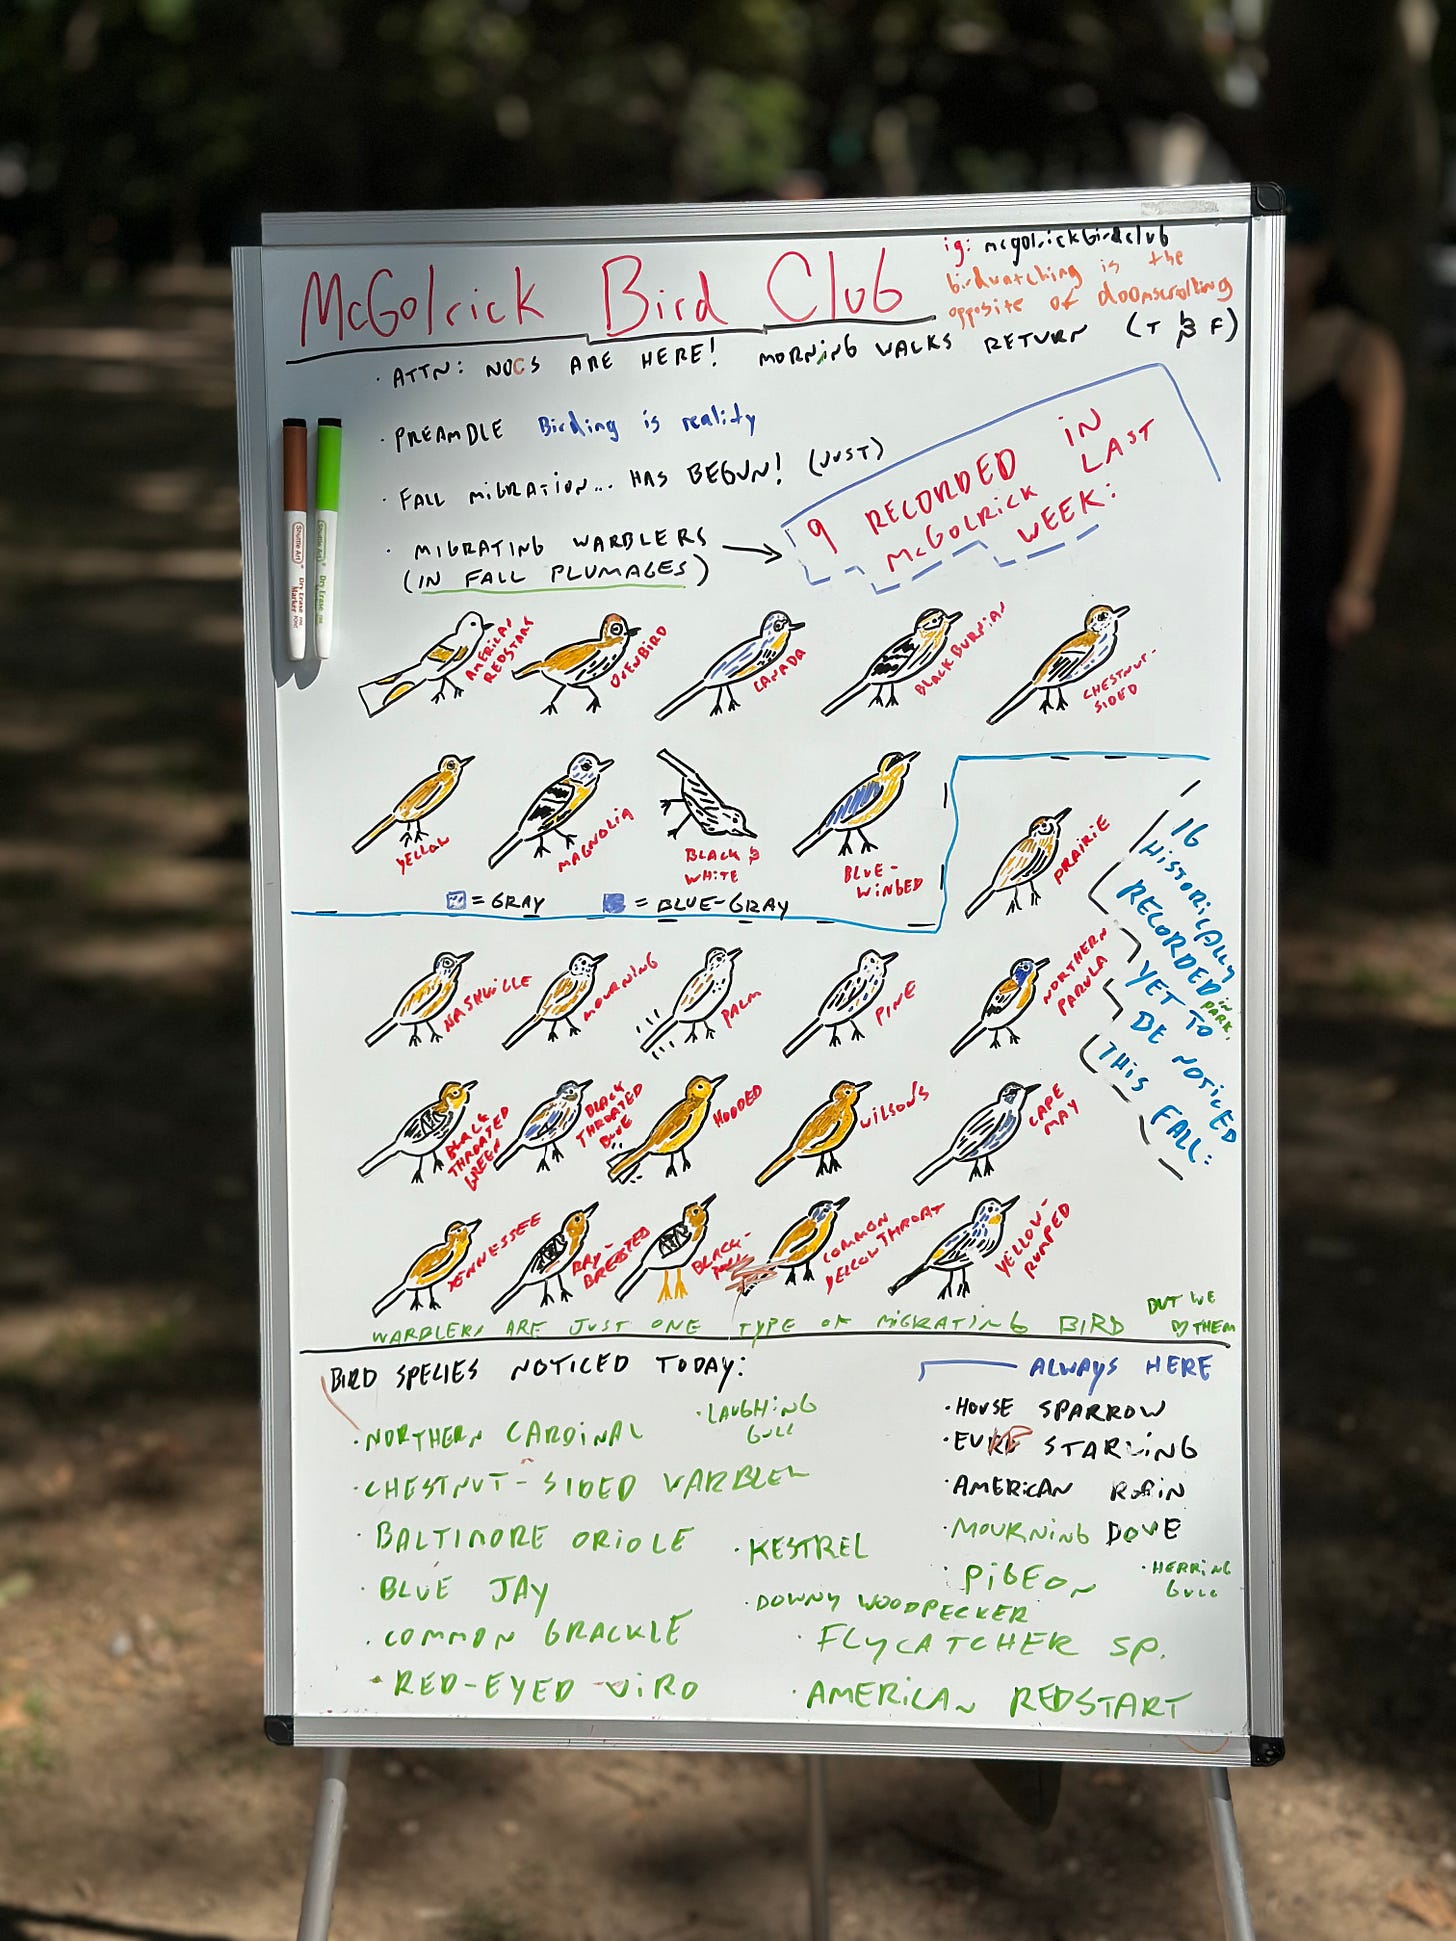 McGolrick Bird Club
ig: mcgolrickbirdclub
birdwatching is the
opposite of doomscrolling
· ATTN: NOCS ARE HERE! MORNING WALKS RETURN (T & F)
· PREAMBLE Birding is reality
· FALL MIGRATION... HAS BEGUN! (JUST)
· MIGRATING WARBLERS
(IN FALL PLUMAGES)
9 RECORDED IN
McGOLRICK LAST
WEEK:
AMERICAN
REDSTART
OVENBIRD
CANADA
BLACKBURNIAN
CHESTNUT-
SIDED
YELLOW
MAGNOLIA
BLACK &
WHITE
BLUE-
WINGED
= GRAY
= BLUE-GRAY
16
HISTORICALLY
RECORDED IN PARK,
YET TO
BE NOTICED
THIS FALL:
PRAIRIE
NASHVILLE
MOURNING
PALM
PINE
NORTHERN
PARULA
BLACK
THROATED
GREEN
BLACK
THROATED
BLUE
HOODED
WILSON'S
CAPE
MAY
TENNESSEE
BAY-
BREASTED
BLACK-
POLL
COMMON
YELLOWTHROAT
YELLOW-
RUMPED
WARBLERS ARE JUST ONE TYPE OF MIGRATING BIRD
BUT WE
♡ THEM
BIRD SPECIES NOTICED TODAY:
· NORTHERN CARDINAL
· LAUGHING
GULL
· CHESTNUT-SIDED WARBLER
· BALTIMORE ORIOLE
· KESTREL
· BLUE JAY
· DOWNY WOODPECKER
· COMMON GRACKLE
· FLYCATCHER SP.
· RED-EYED VIRO
· AMERICAN REDSTART
ALWAYS HERE
· HOUSE SPARROW
· EURO STARLING
· AMERICAN ROBIN
· MOURNING DOVE
· PIGEON
· HERRING
GULL
Shuttle Art
Dry Erase
Marker
Shuttle Art
Dry Erase